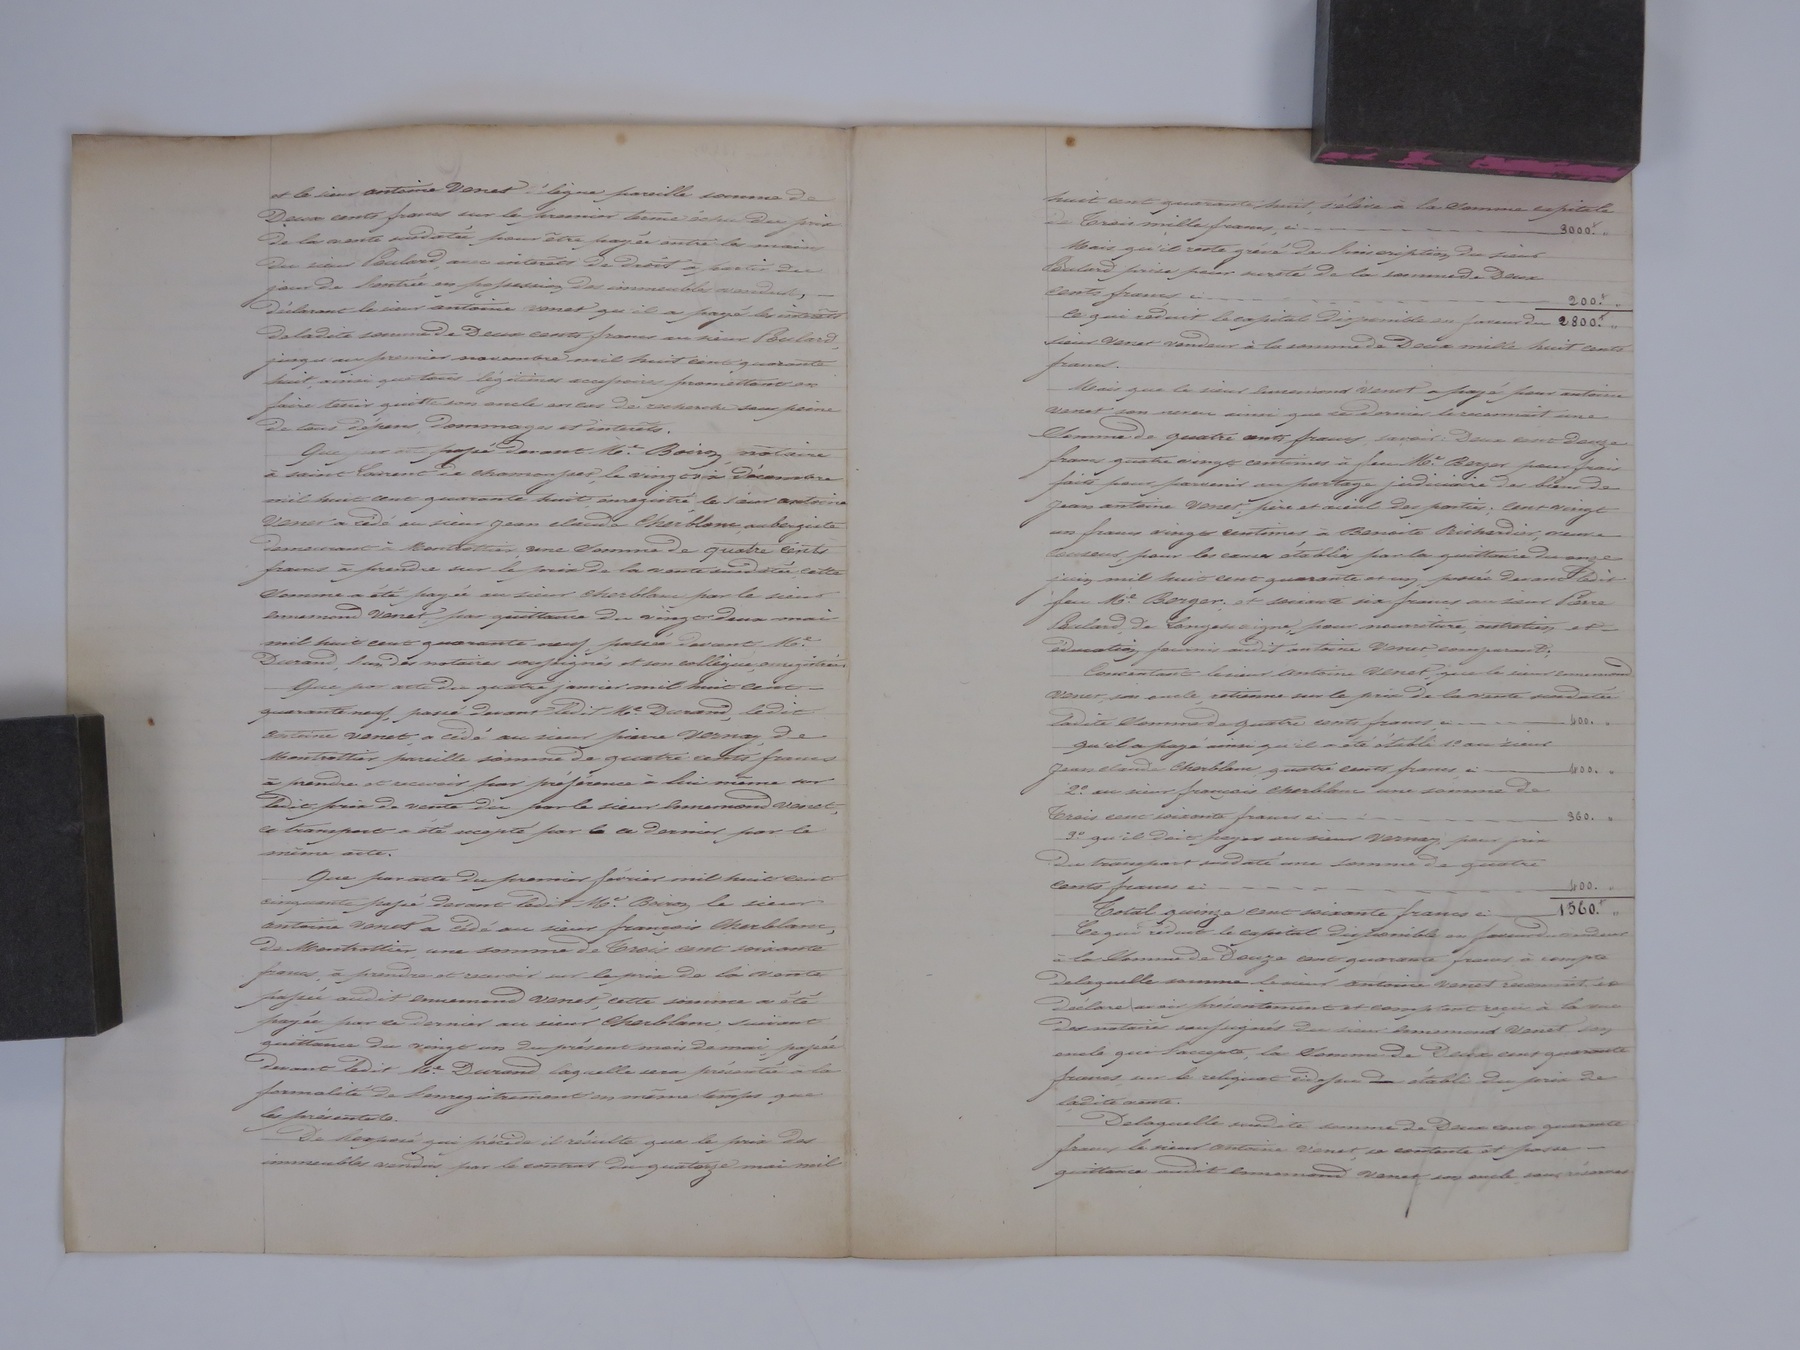 et le sieur antoine Venet lègue pareille somme de
Deux cents francs sur le premier terme échu du prix
de la vente susdatée pour être payée entre les mains
du sieur Poulard, avec intérêts de droit à partir du
jour de l'entrée en possession des immeubles vendus, —
déclarant le sieur antoine Venet qu'il a payé les intérêts
de ladite somme de Deux cents francs au sieur Poulard,
jusqu'au premier novembre mil huit cent quarante
huit, ainsi que tous légitimes accessoires promettant en
faire tenir quitte son oncle en cas de recherche sous peine
de tous dépens, dommages et intérêts.
Que par acte passé devant Me. Boiron notaire
à saint Laurent de chamousset, le vingt six décembre
mil huit cent quarante huit, enregistré, le sieur antoine
Venet a cédé au sieur jean claude Cherblanc, aubergiste
demeurant à Montrottier, une somme de quatre cents
francs à prendre sur le prix de la vente susdatée, cette
somme a été payée au sieur cherblanc par le sieur
ennemond Venet, par quittance du vingt deux mai
mil huit cent quarante neuf, passée devant Me.
Durand, l'un des notaires soussignés et son collègue, enregistrée
Que par acte du quatre janvier mil huit cent —
quarante neuf, passé devant ledit Me. Durand, ledit
antoine Venet, a cédé au sieur pierre Vernay de
Montrottier pareille somme de quatre cents francs
à prendre et recevoir par préférence à lui même sur
ledit prix de vente dû par le sieur ennemond Venet,
ce transport a été accepté par ce dernier, par le
même acte.
Que par acte du premier février mil huit cent
cinquante passé devant ledit Me. Boiron le sieur
antoine Venet a cédé au sieur françois Cherblanc,
de Montrottier, une somme de Trois cent soixante
francs, à prendre et recevoir sur le prix de la vente
passée audit ennemond Venet, cette somme a été
payée par ce dernier au sieur Cherblanc suivant
quittance du vingt un du présent mois de mai, passée
devant ledit Me. Durand laquelle sera présentée à la
formalité de l'enregistrement en même temps que
les présentes.
De l'exposé qui précède il résulte que le prix des
immeubles vendus par le contrat du quatorze mai mil
huit cent quarante huit, s'élève à la somme capitale
de Trois mille francs, ci 3000.f "
Mais qu'il reste grévé de l'inscription du sieur
Poulard prise pour sureté de la somme de Deux
cents francs ci 200.f "
Ce qui réduit le capital disponible en faveur du 2800.f "
sieur Venet vendeur à la somme de Deux mille huit cents
francs.
Mais que le sieur ennemond Venet a payé pour antoine
Venet son neveu ainsi que ce dernier le reconnait une
Somme de quatre cents francs, savoir: Deux cent douze
francs quatre vingt centimes à feu Me. Berger pour frais
faits pour parvenir au partage judiciaire des biens de
jean antoine Venet, père et aïeul des parties; cent vingt
un francs vingt centimes à Benoite Richardier, veuve
pour les causes établies par la quittance du onze
juin mil huit cent quarante et un, passée devant ledit
feu Me. Berger; et soixante six francs au sieur Pierre
Poulard, de Longessaigne, pour nourriture, entretien et —
éducation fournis audit antoine Venet, comparant;
Consentant le sieur Antoine Venet, que le sieur ennemond
Venet, son oncle, retienne sur le prix de la vente susdatée
ladite somme de quatre cents francs ci 400. "
Qu'il a payé ainsi qu'il a été établi 1º au sieur
jean claude Cherblanc, quatre cents francs, ci 400. "
2º au sieur françois Cherblanc une somme de
Trois cent soixante francs ci 360. "
3º qu'il doit payer au sieur Vernay pour prix
du transport susdaté une somme de quatre
cents francs ci 400. "
Total quinze cent soixante francs ci 1560.f "
Ce qui réduit le capital disponible en faveur du vendeur
à la Somme de Douze cent quarante francs, à compte
de laquelle somme le sieur Antoine Venet reconnait et
déclare avoir présentement et comptant reçu à la vue
des notaires soussignés du sieur ennemond Venet son
oncle qui l'accepte, la Somme de Deux cent quarante
francs, sur le reliquat cidessus établi du prix de
ladite vente.
De laquelle susdite somme de Deux cent quarante
francs le sieur Antoine Venet se contente et passe —
quittance audit ennemond Venet, son oncle, sans réserves